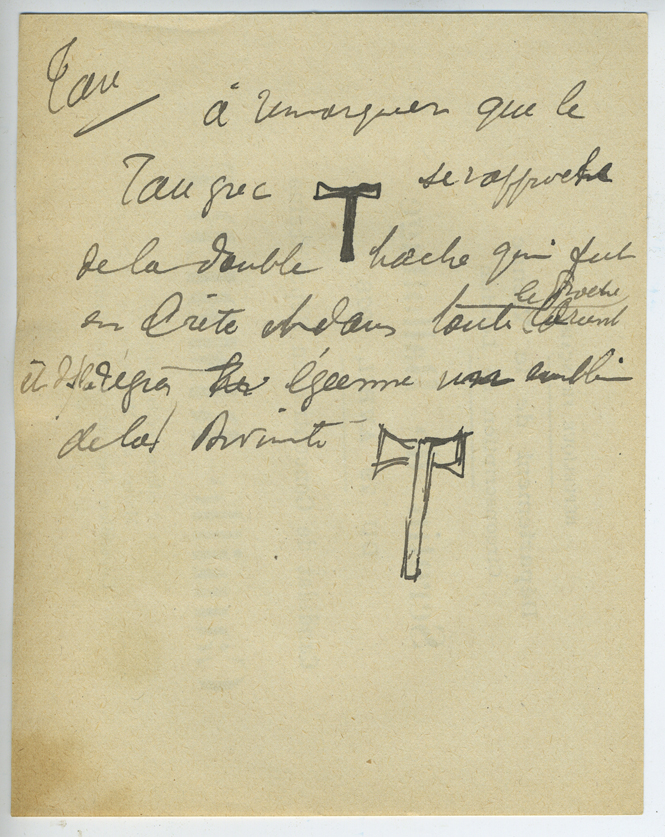 Tau
à remarquer que le
Tau grec se rapproche
de la double hache qui fut
le Proche
en Crète et dans toute Orient
et égéenne un
de la Divinité